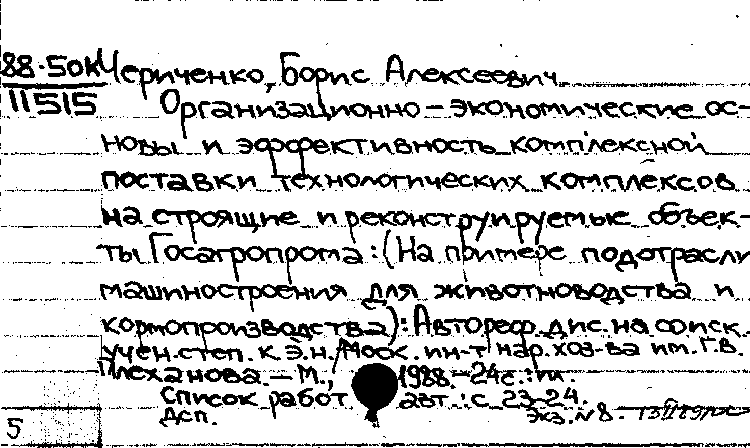 88-50к Чериченко, Борис Алексеевич
11515 Организационно-экономические ос-
новы и эффективность комплексной
поставки технологических комплексов
на строящие и реконструируемые объек-
ты Госагропрома: (На примере подотрасли
машиностроения для животноводства и
кормопроизводства): Автореф. дис. на соиск.
учен. степ. к.э.н. / Моск. ин-т нар. хоз-ва им. Г.В.
Плеханова. - М., 1988. - 24с.: ил.
Список работ авт.: с. 23-24.
Дсп. Экз. N 8.
5